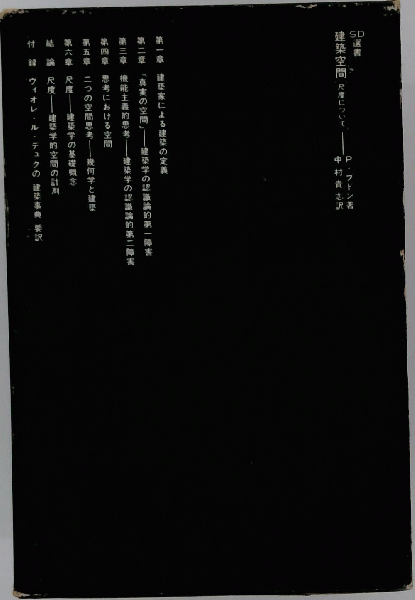 SD選書
建築空間 尺度について――P・ブドン著
中村貴志訳
第一章 建築家による建築の定義
第二章 「真実の空間」――建築学の認識論的第一障害
第三章 機能主義的思考――建築学の認識論的第二障害
第四章 思考における空間
第五章 二つの空間思考――幾何学と建築
第六章 尺度――建築学の基礎概念
結論 尺度――建築学的空間の計測
付録 ヴィオレ・ル・デュクの建築事典 要訳